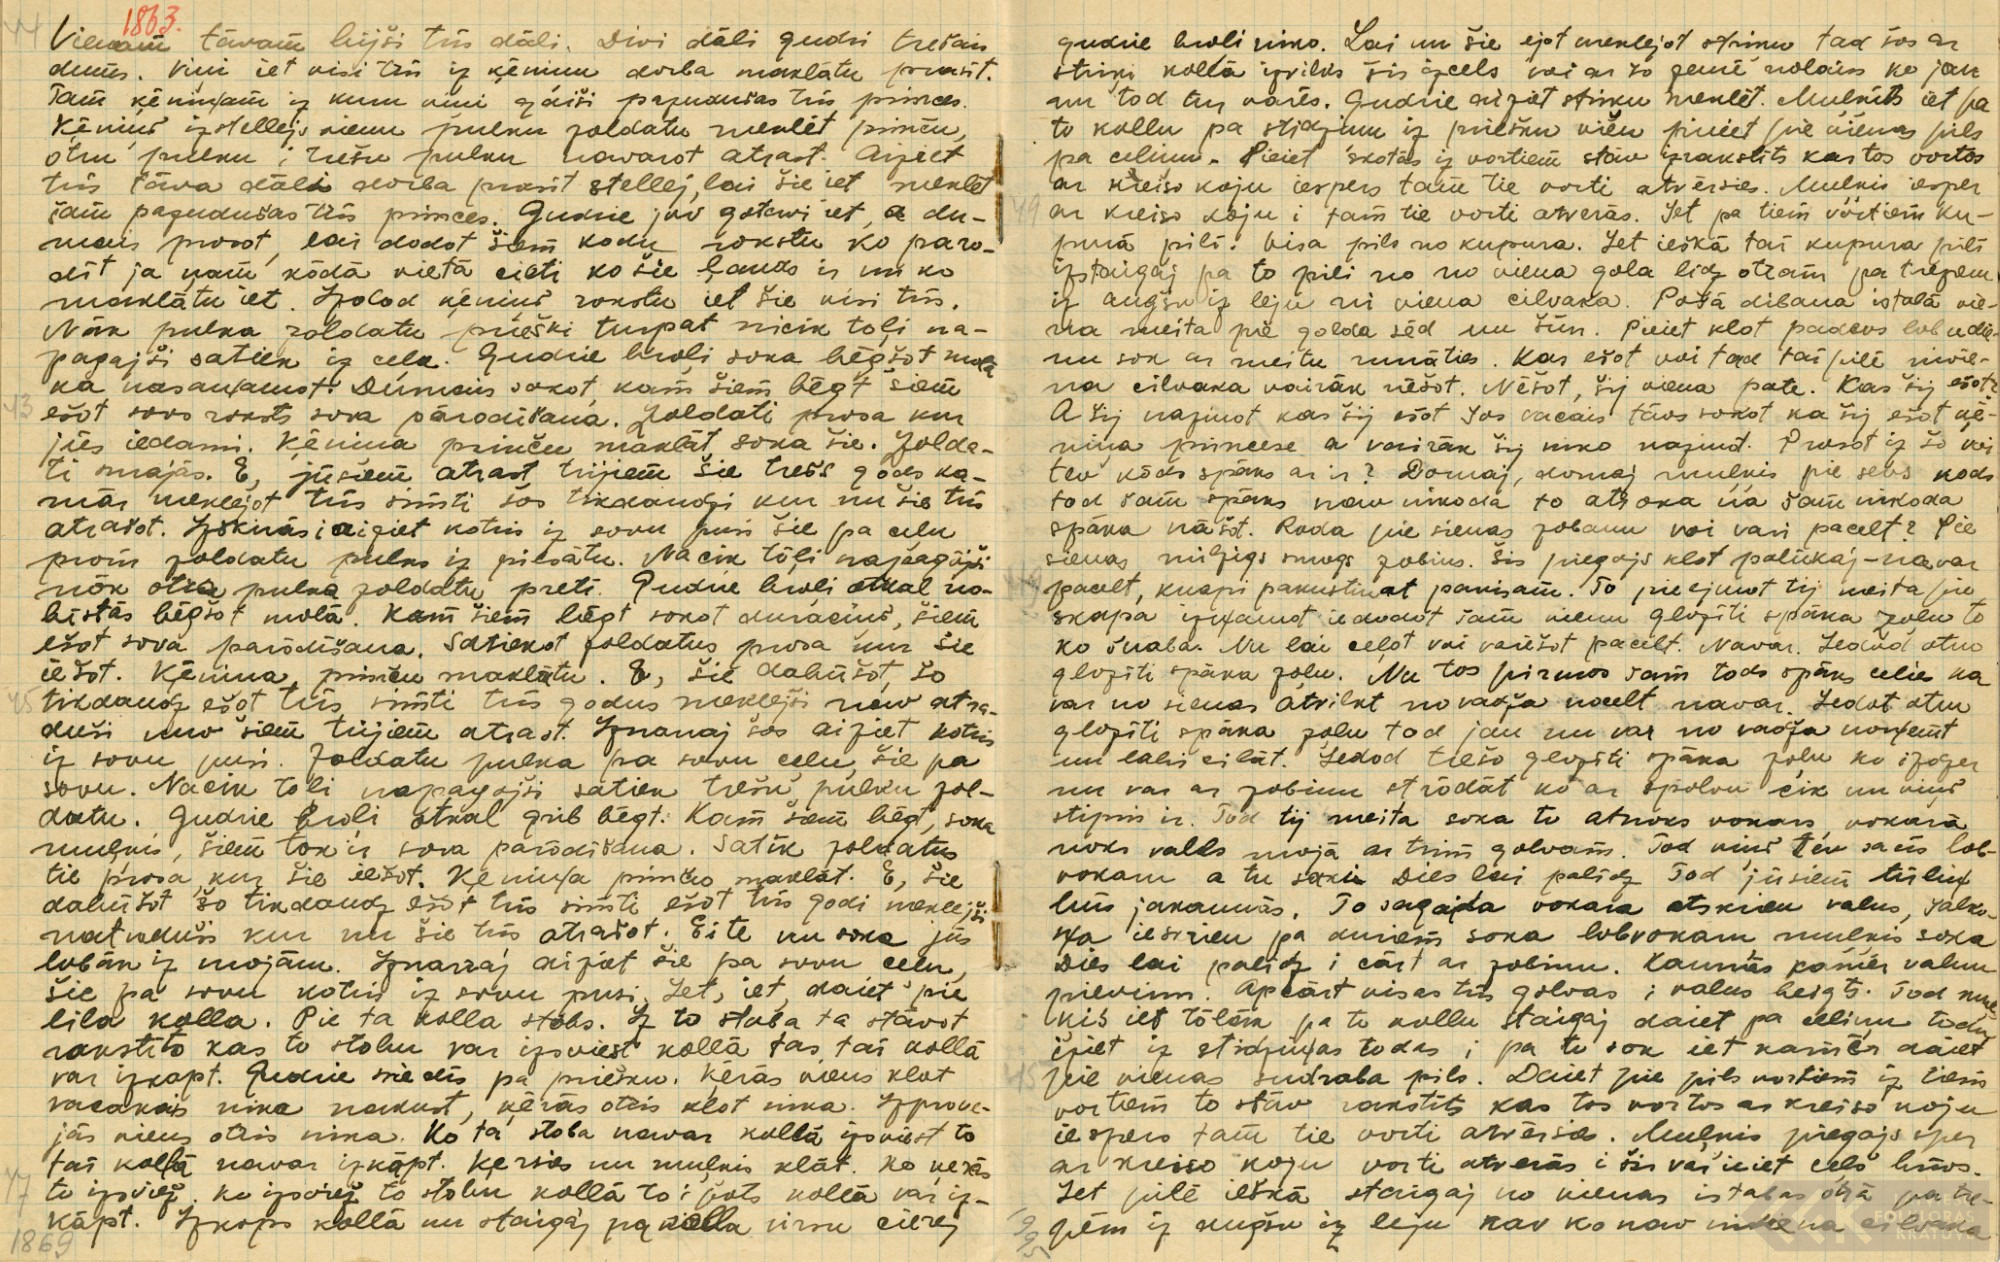 1863.
Vienam tāvam bijši trīs dāli. Divi dāli gudri trešais
dums. Viņi iet visi trīs iz ķēniņu dorba maklātu prasit.
Tam ķēniņam iz kuru viņi gāiši pazudušas trīs princes.
Ķēniņš izstellejs vienu pulku zoldatu meklēt prinču,
otru pulku i trešu pulku navarot atrast. Aiziet
trīs tāva dāli dorba prasit stellej, lai šie iet meklēt
šam pazudušas trīs princes. Gudrie jav gotavi iet, a du-
mais prosot, lai dodot šiem kodu rokstu ko paro-
dīt ja ņam kādā vietā cieti ko šie ļauds ir un ko
maklātu iet. Izdod ķēniņš rokstu iet šie visi trīs.
Nāk pulka zoldatu prieški turpat nicik toļi na-
pagajši satiek iz ceļa. Gudrie broļi soka bēgšot molā
ka nasaņamot. Dumais sokot, kam šiem bēgt šiem
43
ešot sovs roksts sova pārodišana. Zoldati prosa kur
jūs iedami. Ķēniņa prinču maklāt soka šie. Zolda-
ti smajās. E, jūsiem atrast trijiem šie trešs gods ka-
mār meklejot trīs simti šos tikdaudzi kur nu šie trīs
atrašot. Izškirās i aiziet kotris iz sovu pusi šie pa ceļu
prom zoldatu pulks iz pilsātu. Nacik tōļi napagājši
nāk otra pulka zoldatu preti. Gudrie broļi atkal no-
bistās bēgšot molā. Kam šiem bēgt sokot duraciņš, šiem
ešot sova parādišana. Satiekot zoldatus prosa kur šie
iešot. Ķēniņa prinču maklātu. E, šie dabūšot, šo
45
tikdaudz ešot trīs simti trīs godus meklejši nav atra-
duši nav šiem trijiem atrast. Iznanaj šos aiziet kotris
iz sovu pusi. Zoldatu pulka pa sovu ceļu, šie pa
sovu. Nacik toli napagajši satiek trešu pulku zol-
datu. Gudrie broļi atkal grib bēgt. Kam šiem bēgt, soka
muļķis, šiem tok ir sova parādišana. Satik zoldatus
tie prosa kur šie iešot. Ķēniņa prinčo maklāt. E, šie
dabūšot šo tikdaudz ešot trīs simti ešot trīs godi meklejši
natraduši kur nu šie trīs atrašot. Eite nu soka jūs
lobāk iz mojām. Iznarraj aiziet šie pa sovu ceļu,
šie pa sovu kotris iz sovu pusi. Iet, iet, daiet pie
lila kolla. Pie ta kolla stobs. Iz to stoba ta stāvot
rakstito kas to stobu var izsviest kollā tas tai kollā
var izkapt. Gudrie sviedis pa priešku. Ķerās viens klot
vacakais nika nakust, ķērās otris klot nika. Izprove-
jās viens otris nika. Ko ta stoba navar kollā izsviest to
tai kollā navar izkāpt. Ķersies nu muļķis klāt. Ko ķerās
47
to izsviež. Ko izsviež to stobu kollā to i pats kollā var iz-
kāpt. Izkops kollā nu staigāj pa kolla virsu cierej
1869
gudrie broli niko. Lai nu šie ejot meklejot striku tad šos ar
striķi kollā izvilks šis izcels voi ar šo zemē nolais ko jau
nu tod tur varēs. Gudrie aiziet striku meklēt. Muļķīts iet pa
to kollu pa stidziņu iz priešku viņu pieiet pie vienas pils
pa celiņu. Pieiet skotās iz vortiem stāv izrakstits kas tos vortos
ar kreiso koju iespers tam tie vorti atvērsies. Muļķis iesper
49
ar kreiso koju i tam tie vorti atverās. Iet pa tiem vōrtiem ku-
purā pilī. Visa pils no kupura. Iet iešķā tai kupura pilī
izstaigāj pa to pili no no viena gola lidz otram pa trepem
iz augšu iz leju ni viena cilvaka. Pošā dibana istabā vie-
na meita pie golda sēd un šūn. Pieiet klot padevs lobudie-
nu sok ar meitu runāties. Kas ešot voi tad tai pilē nivie-
na cilvaka vairāk nēšot. Nēšot, šij viena pate. Kas šij ešot?
A šij nazinot kas šij ešot šos vacais tāvs sokot ka šij ešot ķē-
niņa princese a vairāk šij niko nazinot. Prosot iz šo voi
tev kāds spāks ar ir? Domaj, domaj muļķis pie sevs kods
tod šam spāks nav nikoda to atsoka ka šam nikoda
spāka nāšot. Roda pie sienas zobanu voi vari pacelt? Pie
sienas milzigs smogs zobins. Šis piegajs klot palūkaj – navar
pacelt, knapi pakustinat pavisam. To pieejmot tij meita pie
skapa izņamot iedodot šam vienu glozīti spāka zolu to
ko šnaba. Nu lai ceļot voi varēšot pacelt. Navar. Iedod otru
glozīti spāka zolu. Nu tos pirmos šam tods spāks celies ka
var no sienas atvilkt no vadža nocelt navar. Iedot otru
glozīti spāka zolu tod jau nu var no vadža noņemt
un labi cilāt. Iedod trešo glozīti spāka zolu ko izdzer
nu var ar zobinu strōdāt kō ar spolvu cik nu viņš
stiprs ir. Tod tij meita soka to atnoks vokars, vokarā
noks valls mojā ar trim golvam. Tod viņš tev sacīs lob-
vokaru a tu soki Dies lai palidz Tod jūsiem tūliņ
būs jakaunās. To sagaida vokara atskrien valns, Tolka-
ņa ieskrien pa duriem soka lobvokaru muļķis soka
Dies lai palidz i cārt ar zobinu. Kaunās kamēr valnu
pievinn. Apcārt visas trīs golvas i valns beigts. Tod muļ-
ķis iet tōlāk pa to kollu staigāj daiet pa celiņu todu
iziet iz stidziņas todas i pa to sok iet kamēr daiet
pie vienas sudraba pils. Daiet pie pils vortiem iz tiem
vortiem to stāv rakstits kas tos vortos ar kreiso koju
iespers tam tie vorti atvērsies. Muļķis piegajs sper
ar kreiso koju vorti atverās i šis var ieiet ceļš brīvs.
Iet pilē iešķā staigaj no vienas istabas otrā pa tre-
pēm iz augšu iz leju nav ko nav niviena cilvaka